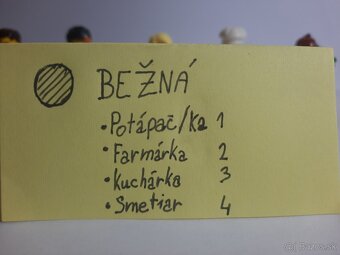 BEŽNÁ
• Potápač/ka 1
• Farmárka 2
• Kuchárka 3
• Smetiar 4
© Bazos.sk